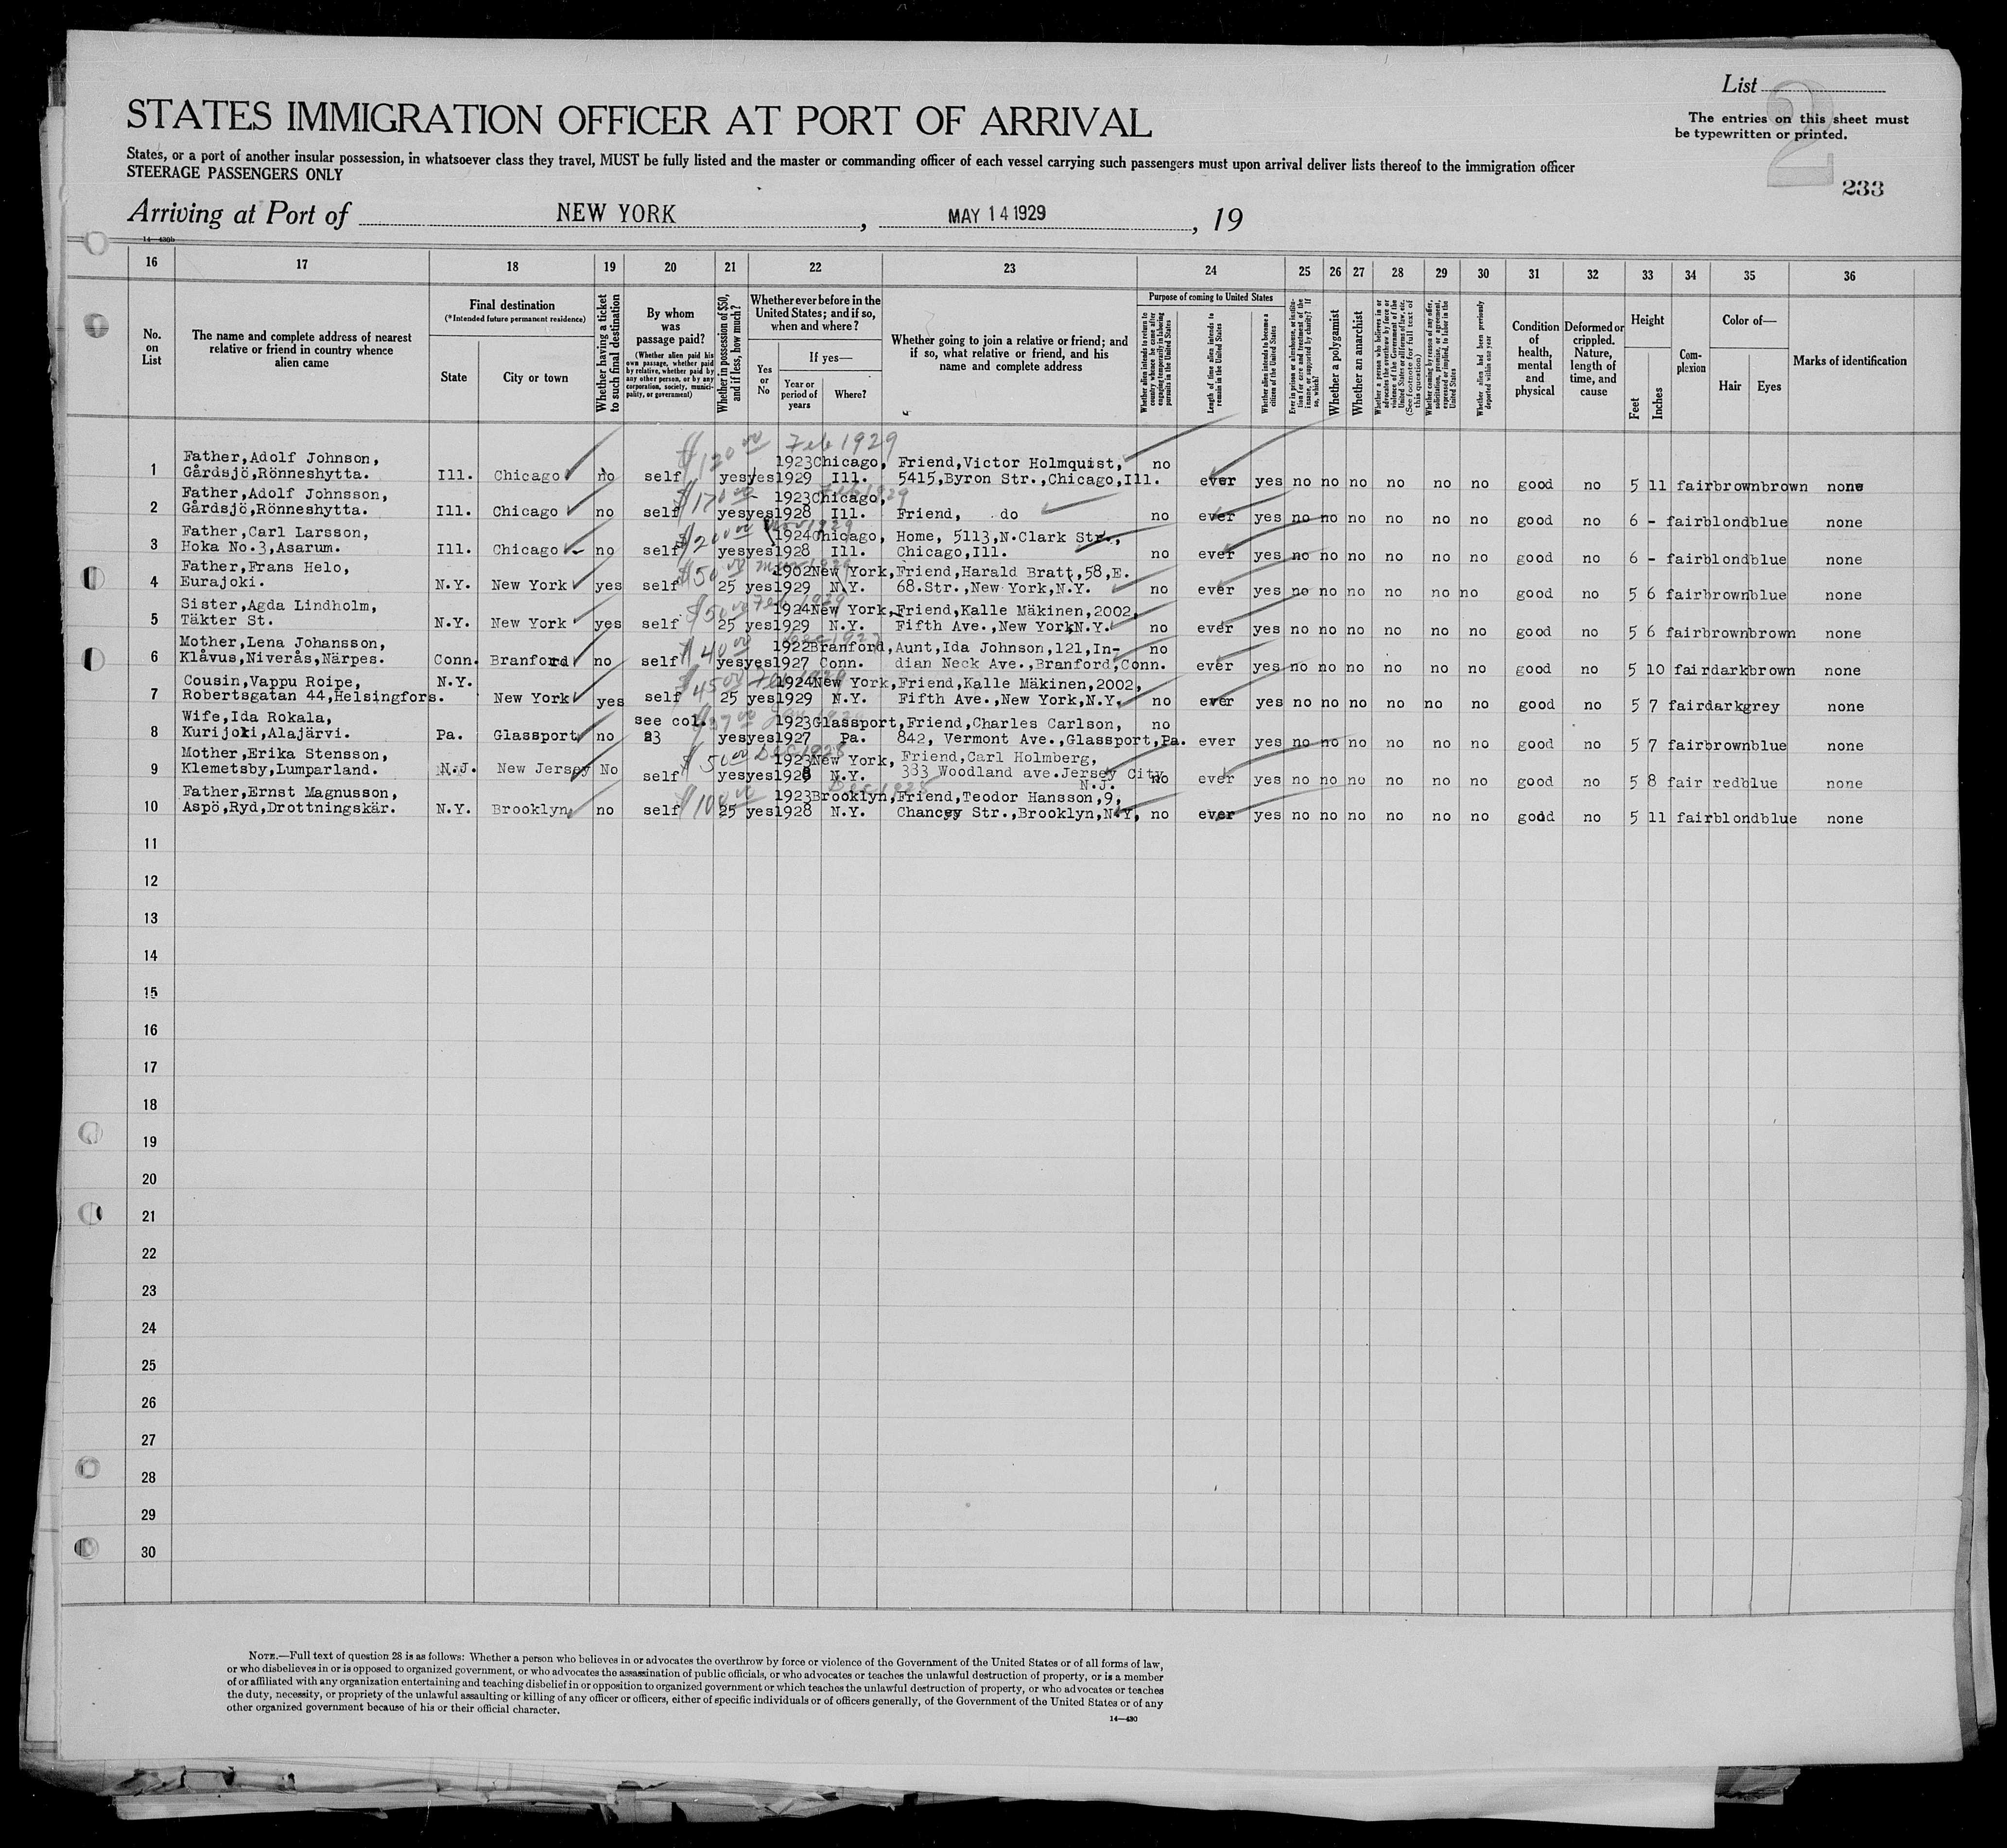 List
2
STATES IMMIGRATION OFFICER AT PORT OF ARRIVAL
The entries on this sheet must
be typewritten or printed.
States, or a port of another insular possession, in whatsoever class they travel, MUST be fully listed and the master or commanding officer of each vessel carrying such passengers must upon arrival deliver lists thereof to the immigration officer
STEERAGE PASSENGERS ONLY
233
Arriving at Port of NEW YORK, MAY 14 1929, 19
14—430b
16 17 18 19 20 21 22 23 24 25 26 27 28 29 30 31 32 33 34 35 36
No. on List
The name and complete address of nearest relative or friend in country whence alien came
Final destination
(*Intended future permanent residence)
State
City or town
Whether having a ticket to such final destination
By whom was passage paid?
(Whether alien paid his own passage, whether paid by relative, whether paid by any other person, or by any corporation, society, municipality, or government)
Whether in possession of $50, and if less, how much?
Whether ever before in the United States; and if so, when and where?
Yes or No
If yes—
Year or period of years
Where?
Whether going to join a relative or friend; and if so, what relative or friend, and his name and complete address
Purpose of coming to United States
Whether alien intends to return to country whence he came after engaging temporarily in laboring pursuits in the United States
Length of time alien intends to remain in the United States
Whether alien intends to become a citizen of the United States
Ever in prison or almshouse, or institution for care and treatment of the insane, or supported by charity? If so, which?
Whether a polygamist
Whether an anarchist
Whether a person who believes in or advocates the overthrow by force or violence of the Government of the United States or all forms of law, etc. (See footnote for full text of this question)
Whether coming by reason of any offer, solicitation, promise, or agreement, expressed or implied, to labor in the United States
Whether alien had been previously deported within one year
Condition of health, mental and physical
Deformed or crippled. Nature, length of time, and cause
Height
Feet
Inches
Complexion
Color of—
Hair
Eyes
Marks of identification
$120 00 Feb 1929
Father,Adolf Johnson, 1923 Chicago, Friend,Victor Holmquist, no
1 Gårdsjö,Rönneshytta. Ill. Chicago no self yes yes 1929 Ill. 5415,Byron Str.,Chicago,Ill. ever yes no no no no no no good no 5 11 fair brown brown none
Father,Adolf Johnsson, $170 00 1923 Chicago,
2 Gårdsjö,Rönneshytta. Ill. Chicago no self yes yes 1928 Ill. Friend, do no ever yes no no no no no no good no 6 - fair blond blue none
Father,Carl Larsson, $200 00 1924 Chicago, Home, 5113,N.Clark Str.,
3 Hoka No.3,Asarum. Ill. Chicago no self yes yes 1928 Ill. Chicago,Ill. no ever yes no no no no no no good no 6 - fair blond blue none
Father,Frans Helo, $50 00 1902 New York, Friend,Harald Bratt,58,E.
4 Eurajoki. N.Y. New York yes self 25 yes 1929 N.Y. 68.Str.,New York,N.Y. no ever yes no no no no no no good no 5 6 fair brown blue none
Sister,Agda Lindholm, $50 00 Feb 1929 1924 New York, Friend,Kalle Mäkinen,2002,
5 Täkter St. N.Y. New York yes self 25 yes 1929 N.Y. Fifth Ave.,New York,N.Y. no ever yes no no no no no no good no 5 6 fair brown brown none
Mother,Lena Johansson, $40 00 Dec 1927 1922 Branford, Aunt,Ida Johnson,121,In- no
6 Klåvus,Niverås,Närpes. Conn. Branford no self yes yes 1927 Conn. dian Neck Ave.,Branford,Conn. ever yes no no no no no no good no 5 10 fair dark brown none
Cousin,Vappu Roipe, N.Y. $45 00 1924 New York, Friend,Kalle Mäkinen,2002,
7 Robertsgatan 44,Helsingfors. New York yes self 25 yes 1929 N.Y. Fifth Ave.,New York,N.Y. no ever yes no no no no no no good no 5 7 fair dark grey none
Wife,Ida Rokala, see col. 1923 Glassport, Friend,Charles Carlson, no
8 Kurijoki,Alajärvi. Pa. Glassport no 23 yes yes 1927 Pa. 842, Vermont Ave.,Glassport,Pa. ever yes no no no no no no good no 5 7 fair brown blue none
Mother,Erika Stensson, $50 00 Dec 1928 1923 New York, Friend,Carl Holmberg,
9 Klemetsby,Lumparland. N.J. New Jersey No self yes yes 1928 N.Y. 333 Woodland ave.Jersey City N.J. no ever yes no no no no no no good no 5 8 fair red blue none
Father,Ernst Magnusson, $100 00 Dec 1928 1923 Brooklyn, Friend,Teodor Hansson,9,
10 Aspö,Ryd,Drottningskär. N.Y. Brooklyn no self 25 yes 1928 N.Y. Chancey Str.,Brooklyn,N.Y, no ever yes no no no no no no good no 5 11 fair blond blue none
11
12
13
14
15
16
17
18
19
20
21
22
23
24
25
26
27
28
29
30
NOTE.—Full text of question 28 is as follows: Whether a person who believes in or advocates the overthrow by force or violence of the Government of the United States or of all forms of law,
or who disbelieves in or is opposed to organized government, or who advocates the assassination of public officials, or who advocates or teaches the unlawful destruction of property, or is a member
of or affiliated with any organization entertaining and teaching disbelief in or opposition to organized government or which teaches the unlawful destruction of property, or who advocates or teaches
the duty, necessity, or propriety of the unlawful assaulting or killing of any officer or officers, either of specific individuals or of officers generally, of the Government of the United States or of any
other organized government because of his or their official character.
14—430